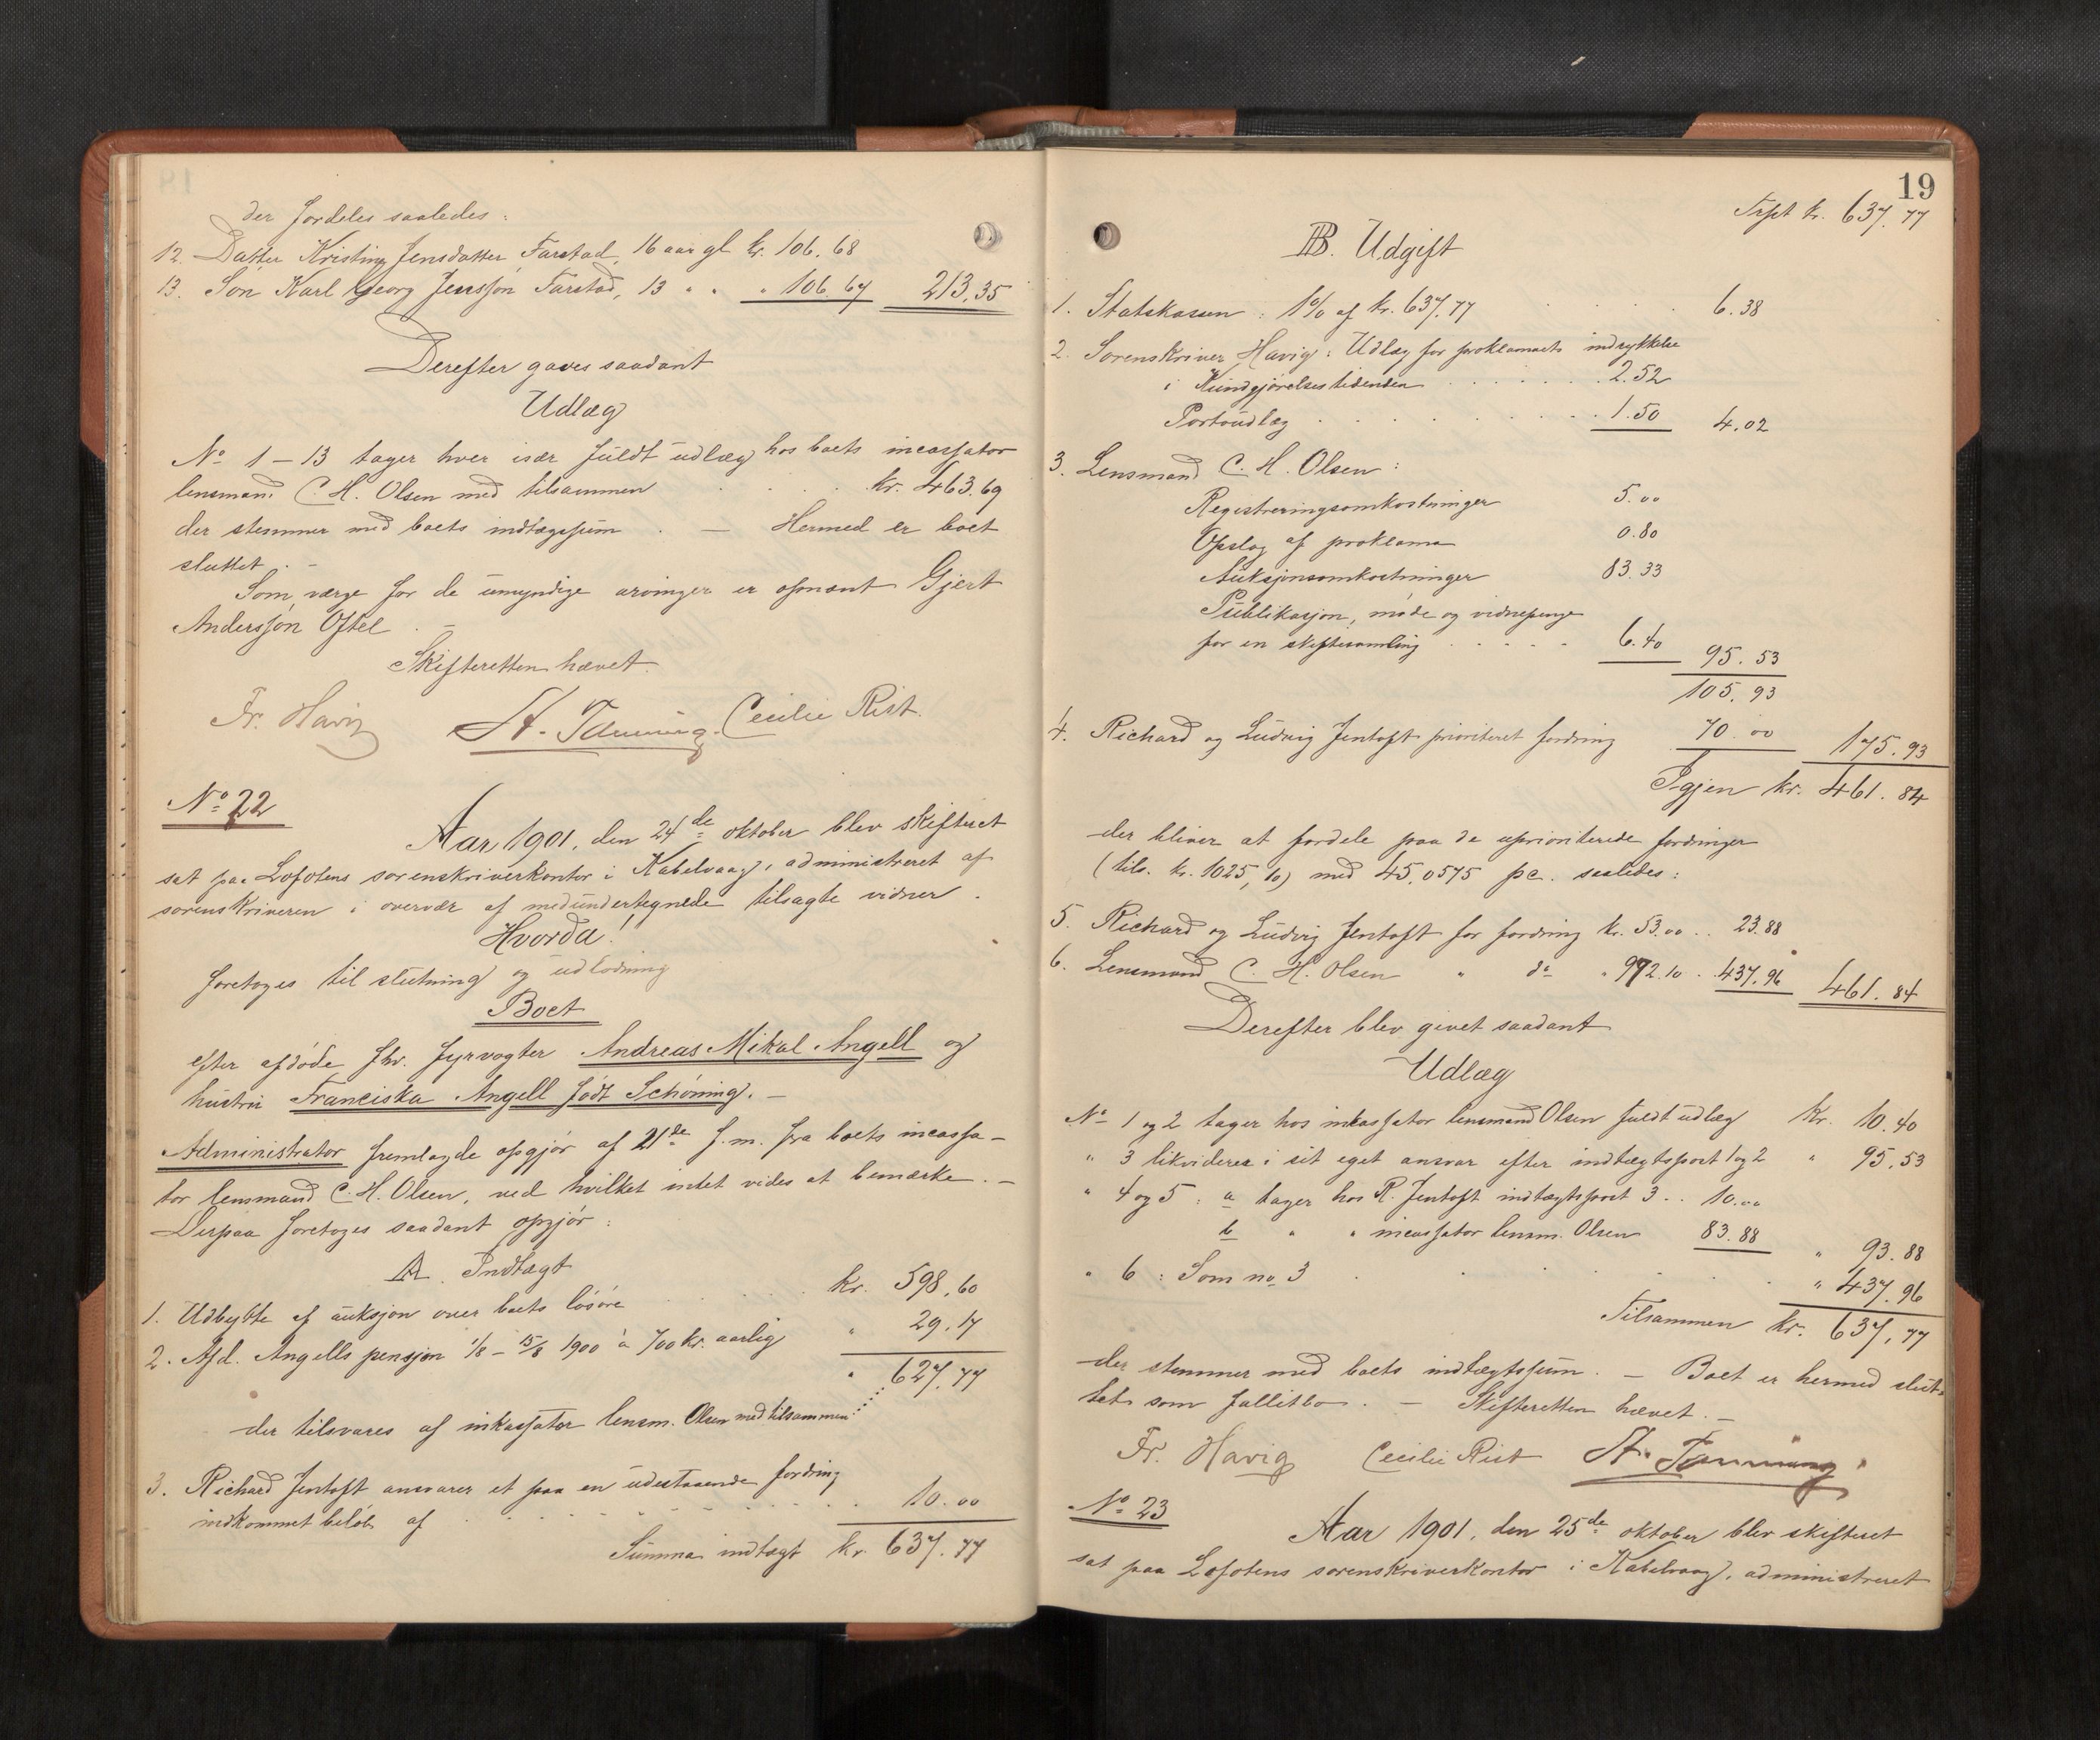 der fordeles saaledes:
12. Datter Kristine Jensdatter Farstad, 16 aar gl kr. 106.68
13. Søn Karl Georg Jenssøn Farstad, 13 " " " 106.67 213.35
Derefter gaves saadant
Udlæg
No 1–13 tager hver især fuldt udlæg hos boets incassator
lensmand C. H. Olsen med tilsammen . . . . kr. 463.69
der stemmer med boets indtægssum. — Hermed er boet
sluttet. –
Som værge for de umyndige arvinger er opnævnt Gjert
Anderssøn Oftel. –
Skifteretten hævet.
Fr. Havig A. Tønning. Cecilie Rist.
No 22
Aar 1901, den 24de oktober blev skifteret
sat paa Lofotens sorenskriverkontor i Kabelvaag, administreret af
sorenskriveren i overvær af medundertegnede tilsagte vidner.
Hvorda!
foretoges til slutning og udlodning
Boet
efter afdøde fhv. fyrvogter Andreas Mikal Angell og
hustru Franciska Angell født Schøning. –
Administrator fremlagde opgjør af 21de f.m. fra boets incassa-
tor lensmand C. H. Olsen, ved hvilket intet vides at bemærke. –
Derpaa foretoges saadant opgjør:
A. Indtægt
1. Udbytte af auksjon over boets løsøre . . . . . kr. 598.60
2. Afd. Angells pensjon 1/8 – 15/8 1900 à 700 kr. aarlig " 29.17
" 627.77
der tilsvares af inkassator lensm. Olsen med tilsammen
3. Richard Jentoft ansvarer et paa en udestaaende fordring
indkommet beløb af . . . . . . . 10.00
Summa indtægt kr. 637.77
19
Trspt kr. 637.77
B. Udgift
1. Statskassen: 1% af kr. 637.77 . . . 6.38
2. Sorenskriver Havig: Udlæg for proklamaets indrykkelse
i Kundgjørelsestidenden . . . . . . 2.52
Portoudlæg . . . . . . . 1.50 4.02
3. Lensmand C. H. Olsen:
Registreringsomkostninger 5.00
Opslag af proklama 0.80
Auksjonsomkostninger 83.33
Publikasjon, møde og vidnepenge
for en skiftesamling . . . . . 6.40 95.53
105.93
4. Richard og Ludvig Jentoft prioriteret fordring 70.00 175.93
Igjen kr. 461.84
der bliver at fordele paa de uprioriterede fordringer
(tils. kr. 1025,10) med 45,0575 pc. saaledes:
5. Richard og Ludvig Jentoft for fordring kr. 53.00 . . 23.88
6. Lensmand C. H. Olsen " do " 972.10 . 437.96 461.84
Derefter blev givet saadant
Udlæg
No 1 og 2 tager hos inkassator lensmand Olsen fuldt udlæg kr. 10.40
" 3 likviderer i sit eget ansvar efter indtægtspost 1 og 2 " 95.53
" 4 og 5: a tager hos R. Jentoft indtægtspost 3 . . 10.00
b " " incassator lensm. Olsen 83.88 " 93.88
" 6: Som no 3 . . . . . . " 437.96
Tilsammen kr. 637.77
der stemmer med boets indtægtssum. — Boet er hermed slut-
tet som fallitbo. — Skifteretten hævet. –
Fr. Havig Cecilie Rist A. Tønning.
No 23
Aar 1901, den 25de oktober blev skifteret
sat paa Lofotens sorenskriverkontor i Kabelvaag, administreret